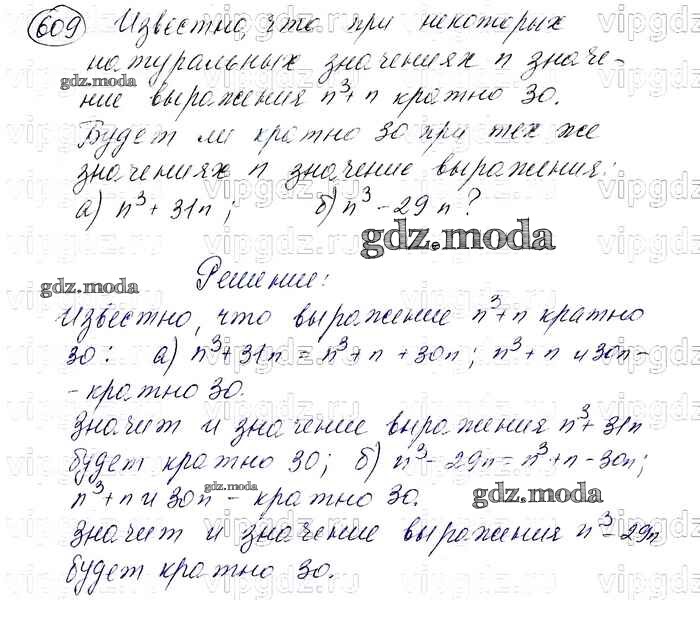 609 Известно, что при некоторых
натуральных значениях n значе-
gdz.moda
ние выражения n³+n кратно 30.
Будет ли кратно 30 при тех же
значениях n значение выражения:
а) n³+31n; б) n³-29n?
gdz.moda
Решение:
gdz.moda
Известно, что выражение n³+n кратно
30: а) n³+31n = n³+n+30n; n³+n и 30n-
- кратно 30.
Значит и значение выражения n³+31n
будет кратно 30; б) n³-29n=n³+n-30n;
gdz.moda
n³+n и 30n - кратно 30.
gdz.moda
Значит и значение выражения n³-29n
будет кратно 30.